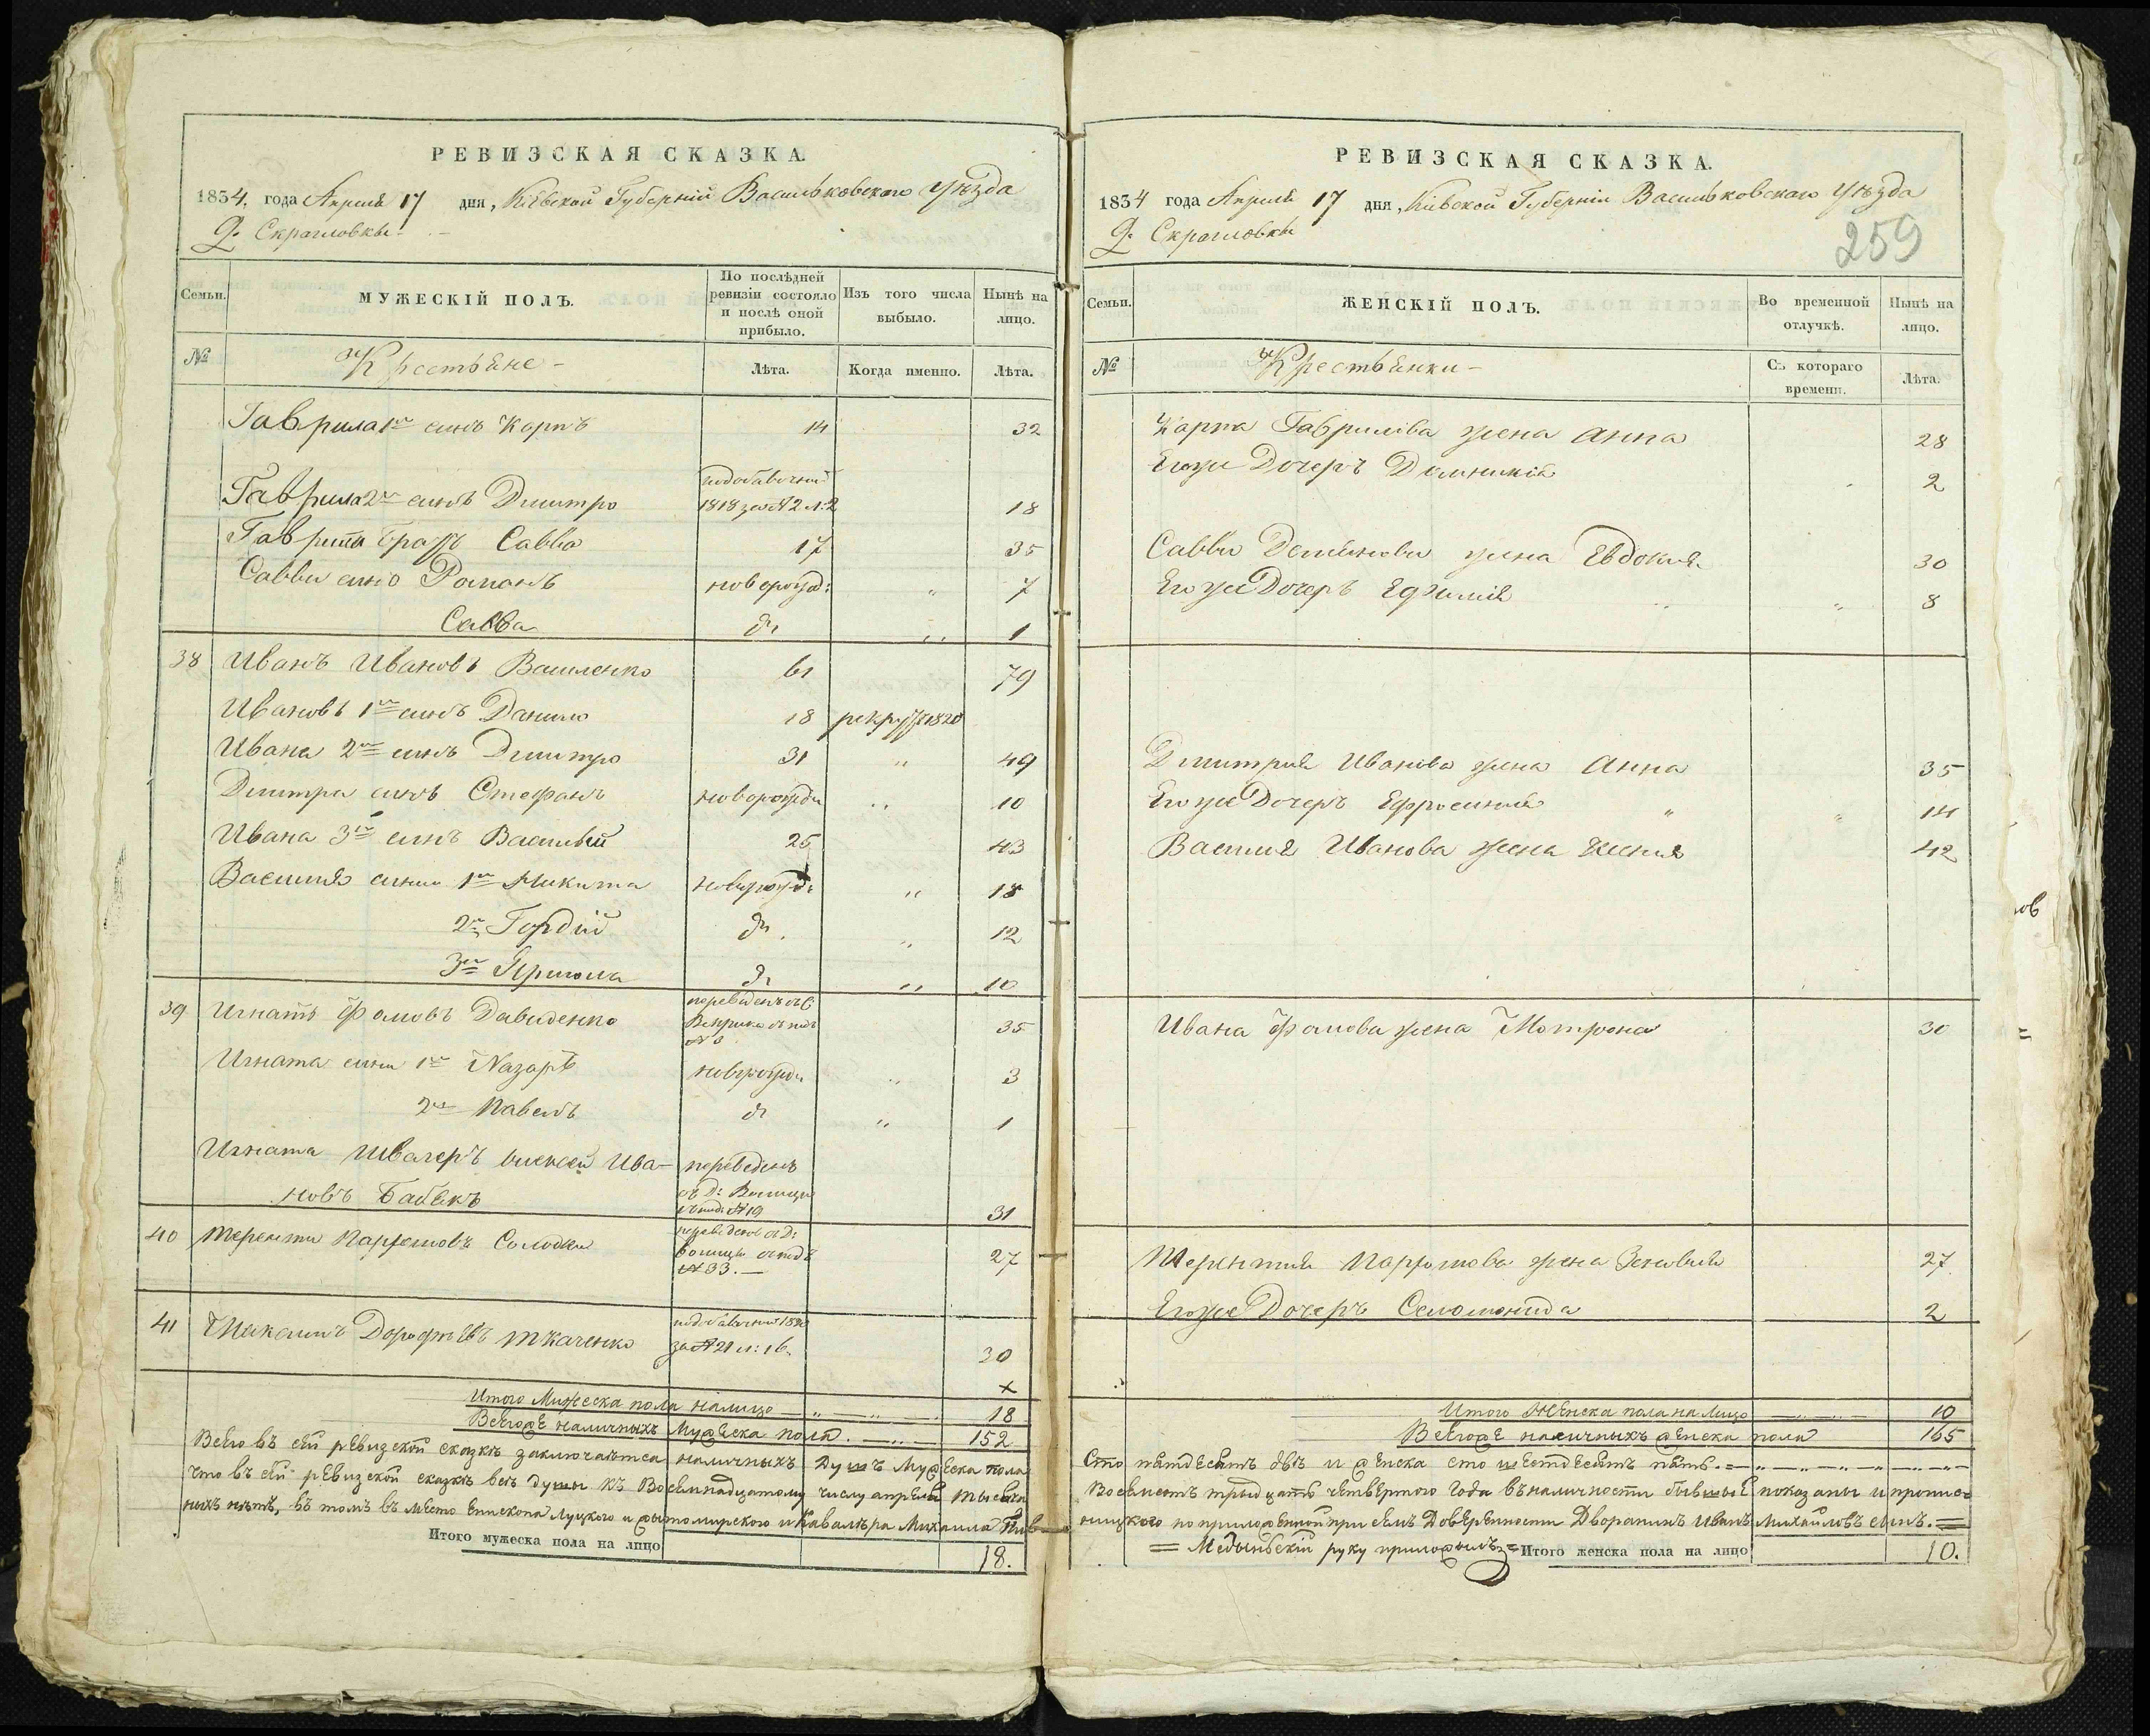 РЕВИЗСКАЯ СКАЗКА.
1834, года Апреля 17 дня, Кіевской Губерніи Васильковского Уѣзда
Д. Скрагловки
Семьи.
МУЖЕСКІЙ ПОЛЪ.
По послѣдней ревизіи состояло и послѣ оной прибыло.
Изъ того числа выбыло.
Нынѣ на лицо.
№
Крестьяне
Лѣта.
Когда именно.
Лѣта.
Гаврила 1й синъ Карпъ 14 32
Гаврила 2й синъ Дмитро 1818 за № 2 л: 2 18
Гаврила братъ Савва 17 35
Саввы сины Романъ новорожд: " 7
Савва д: " 1
38 Иванъ Ивановъ Василенко 61 79
Ивановъ 1й синъ Данило 18 рекрут 1820
Ивана 2й синъ Дмитро 31 " 49
Дмитра синъ Стефанъ новорожд " 10
Ивана 3й синъ Василий 25 43
Василия сини 1й Микита новорожд: " 18
2й Гордій д: " 12
3й Ярмола д: " 10
39 Игнатъ Фомовъ Давиденко переведенъ 35
Игната сини 1й Назаръ новорожд " 3
2й Павелъ д: " 1
Игната швагеръ Ива-
новъ Бабакъ переведенъ № 19 31
40 Терентий Парфеновъ Солодкий переведенъ № 33. 27
41 Максимъ Дорофеевъ Ткаченко за № 21 л: 16. 30
Итого Мужеска пола налицо 18
Всего же наличныхъ Мужеска пола 152
Всего въ сей ревизской сказкѣ заключается наличныхъ Душъ Мужеска пола
что въ сей ревизской сказкѣ всѣ души къ Восемнадцатому числу апреля тысяча
ныхъ нѣтъ, въ томъ въ место Епископа Луцкого и Житомирского и Кавалѣра Михаила Пив
Итого мужеска пола на лицо 18.
РЕВИЗСКАЯ СКАЗКА.
1834 года Апреля 17 дня, Кіевской Губерніи Васильковскаго Уѣзда
Д. Скрагловки
259
Семьи.
ЖЕНСКІЙ ПОЛЪ.
Во временной отлучкѣ.
Нынѣ на лицо.
№
Крестьянки
Съ котораго времени.
Лѣта.
Карпа Гаврилова жена Анна 28
Его же Дочерь Домникия 2
Саввы жена Евдокия 30
Его же Дочерь Ефимия " 8
Дмитрия Иванова жена Анна 35
Его же Дочерь Ефросиния " 14
Василия Иванова жена Ксения 42
Ивана Фомова жена Мотрона 30
Терентия Парфенова жена Зиновия 27
Его же Дочерь Соломонида 2
Итого Женска пола на лицо 10
Всего же наличныхъ женска пола 165
Сто пятдесятъ двѣ и женска сто шестдесятъ пять.
Восемсотъ тридцать четвертого года въ наличности бывшые показаны и прописо
ницкого по приложенной при семъ Доверенности Дворанинъ Иванъ Михайловъ синъ.
Медынскій руку приложылъ
Итого женска пола на лицо 10.